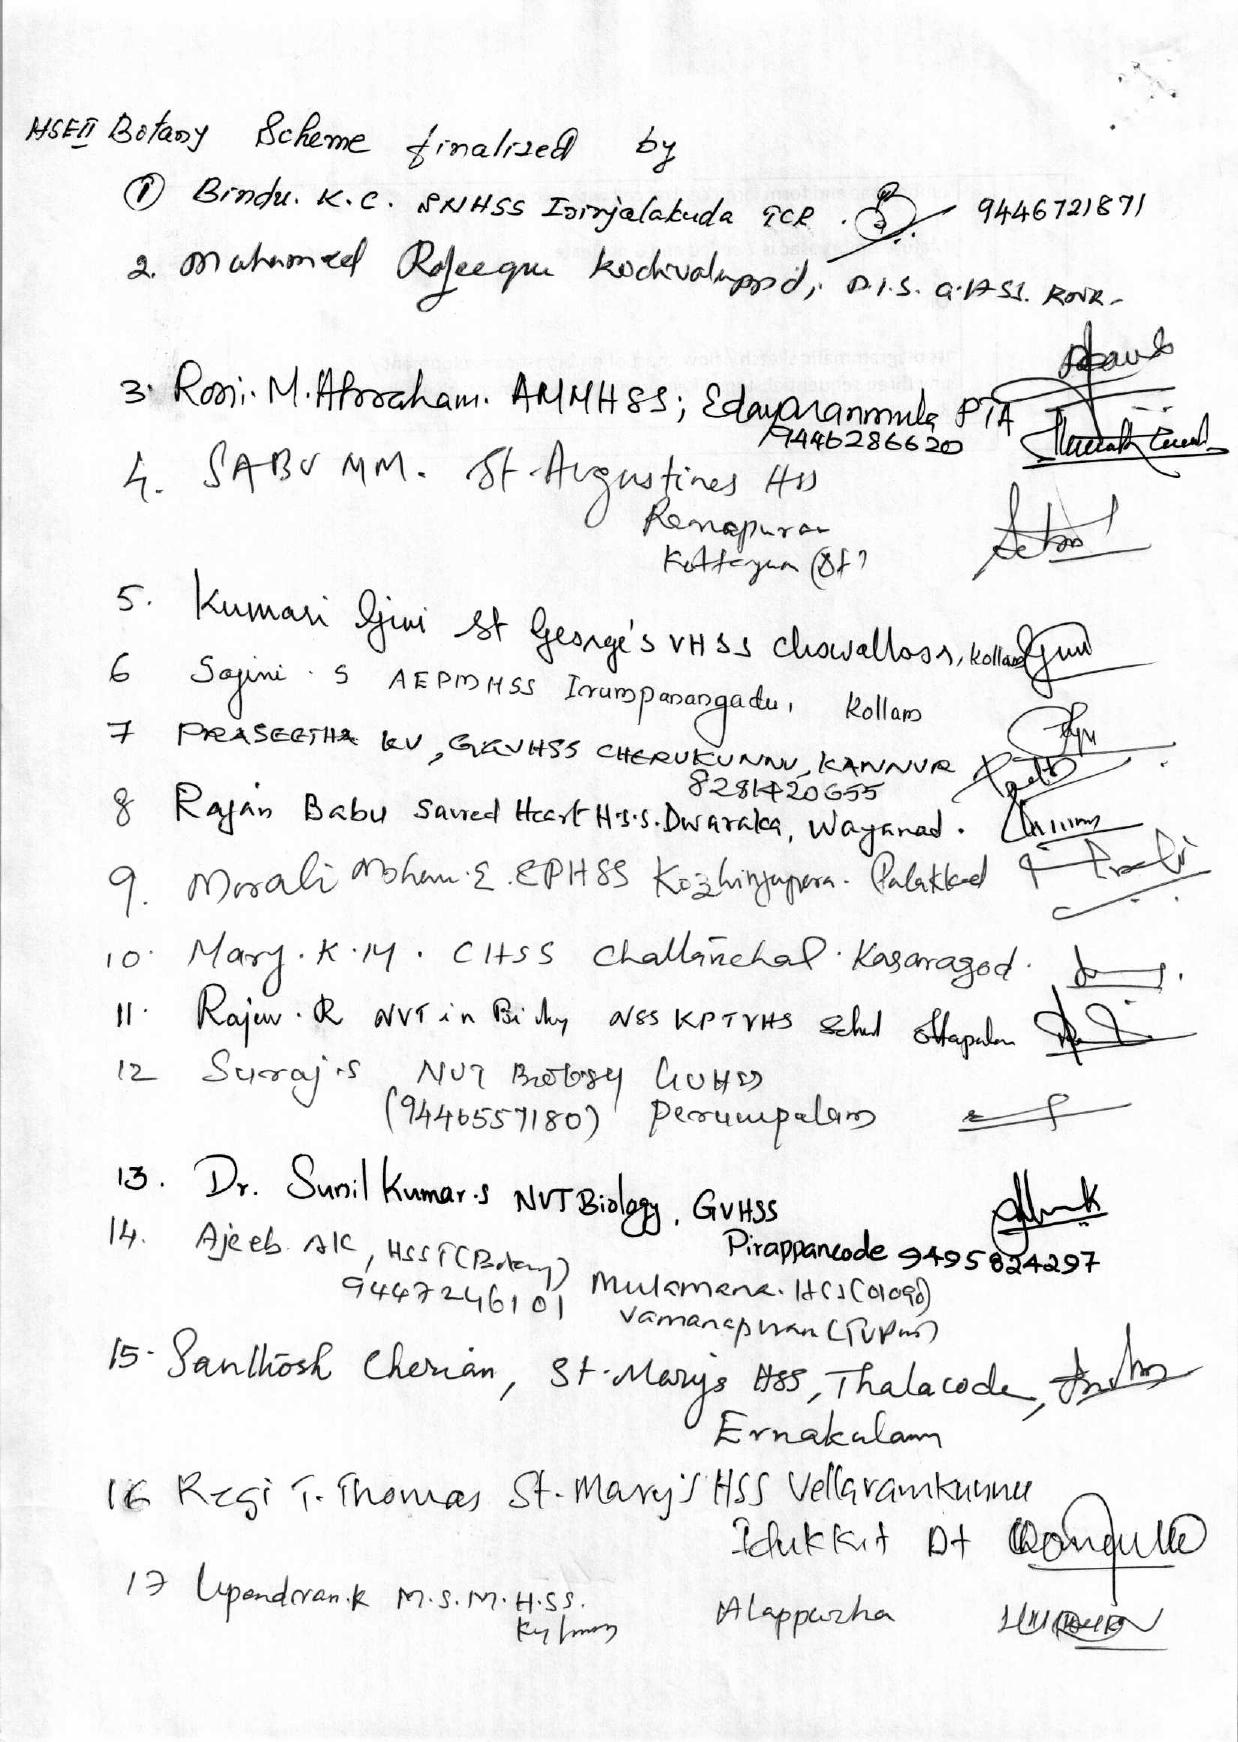 HSE II Botany Scheme finalised by
① Bindu. K.C. SNHSS Irinjalakuda TCR. 9446721871
2. Mohamed Rafeeque D.I.S. G.HSS.
3. Roni. M. Abraham. AMMHSS; Edayaranmula PTA
9446286620
4. SABU MM. St. Augustines HSS
Ramapuram
Kottayam (Dt)
5. Kumari Gini St George's VHSS Chowalloor, Kollam
6 Sajini. S AEPMHSS Irumpanangadu, Kollam
7 PRASEETHA KV, GGVHSS CHERUKUNNU, KANNUR
8281420655
8 Rajan Babu Sacred Heart H.S.S. Dwaraka, Wayanad.
9. Morali Mohan. E. EPHSS Kozhinjapara. Palakkad
10. Mary. K. M. CHSS Challanchal. Kasaragod.
11. Rajeev. R NVT in Biology NSS KPTVHS School Ottapalam
12 Suraj.s NVT Biology GVHSS
(9446557180) Perumpalam
13. Dr. Sunil Kumar.s NVT Biology, GVHSS
Pirappancode 9495824297
14. Ajeeb AK, HSST (Botany)
9447246101 Mulamana. HSS (01090)
Vamanapuram (TVPM)
15. Santhosh Cherian, St. Marys HSS, Thalacode,
Ernakulam
16 Regi T. Thomas St. Mary's HSS Vellaramkunnu
Idukki Dt
17 Upendran.K M.S.M.H.SS. Alappuzha